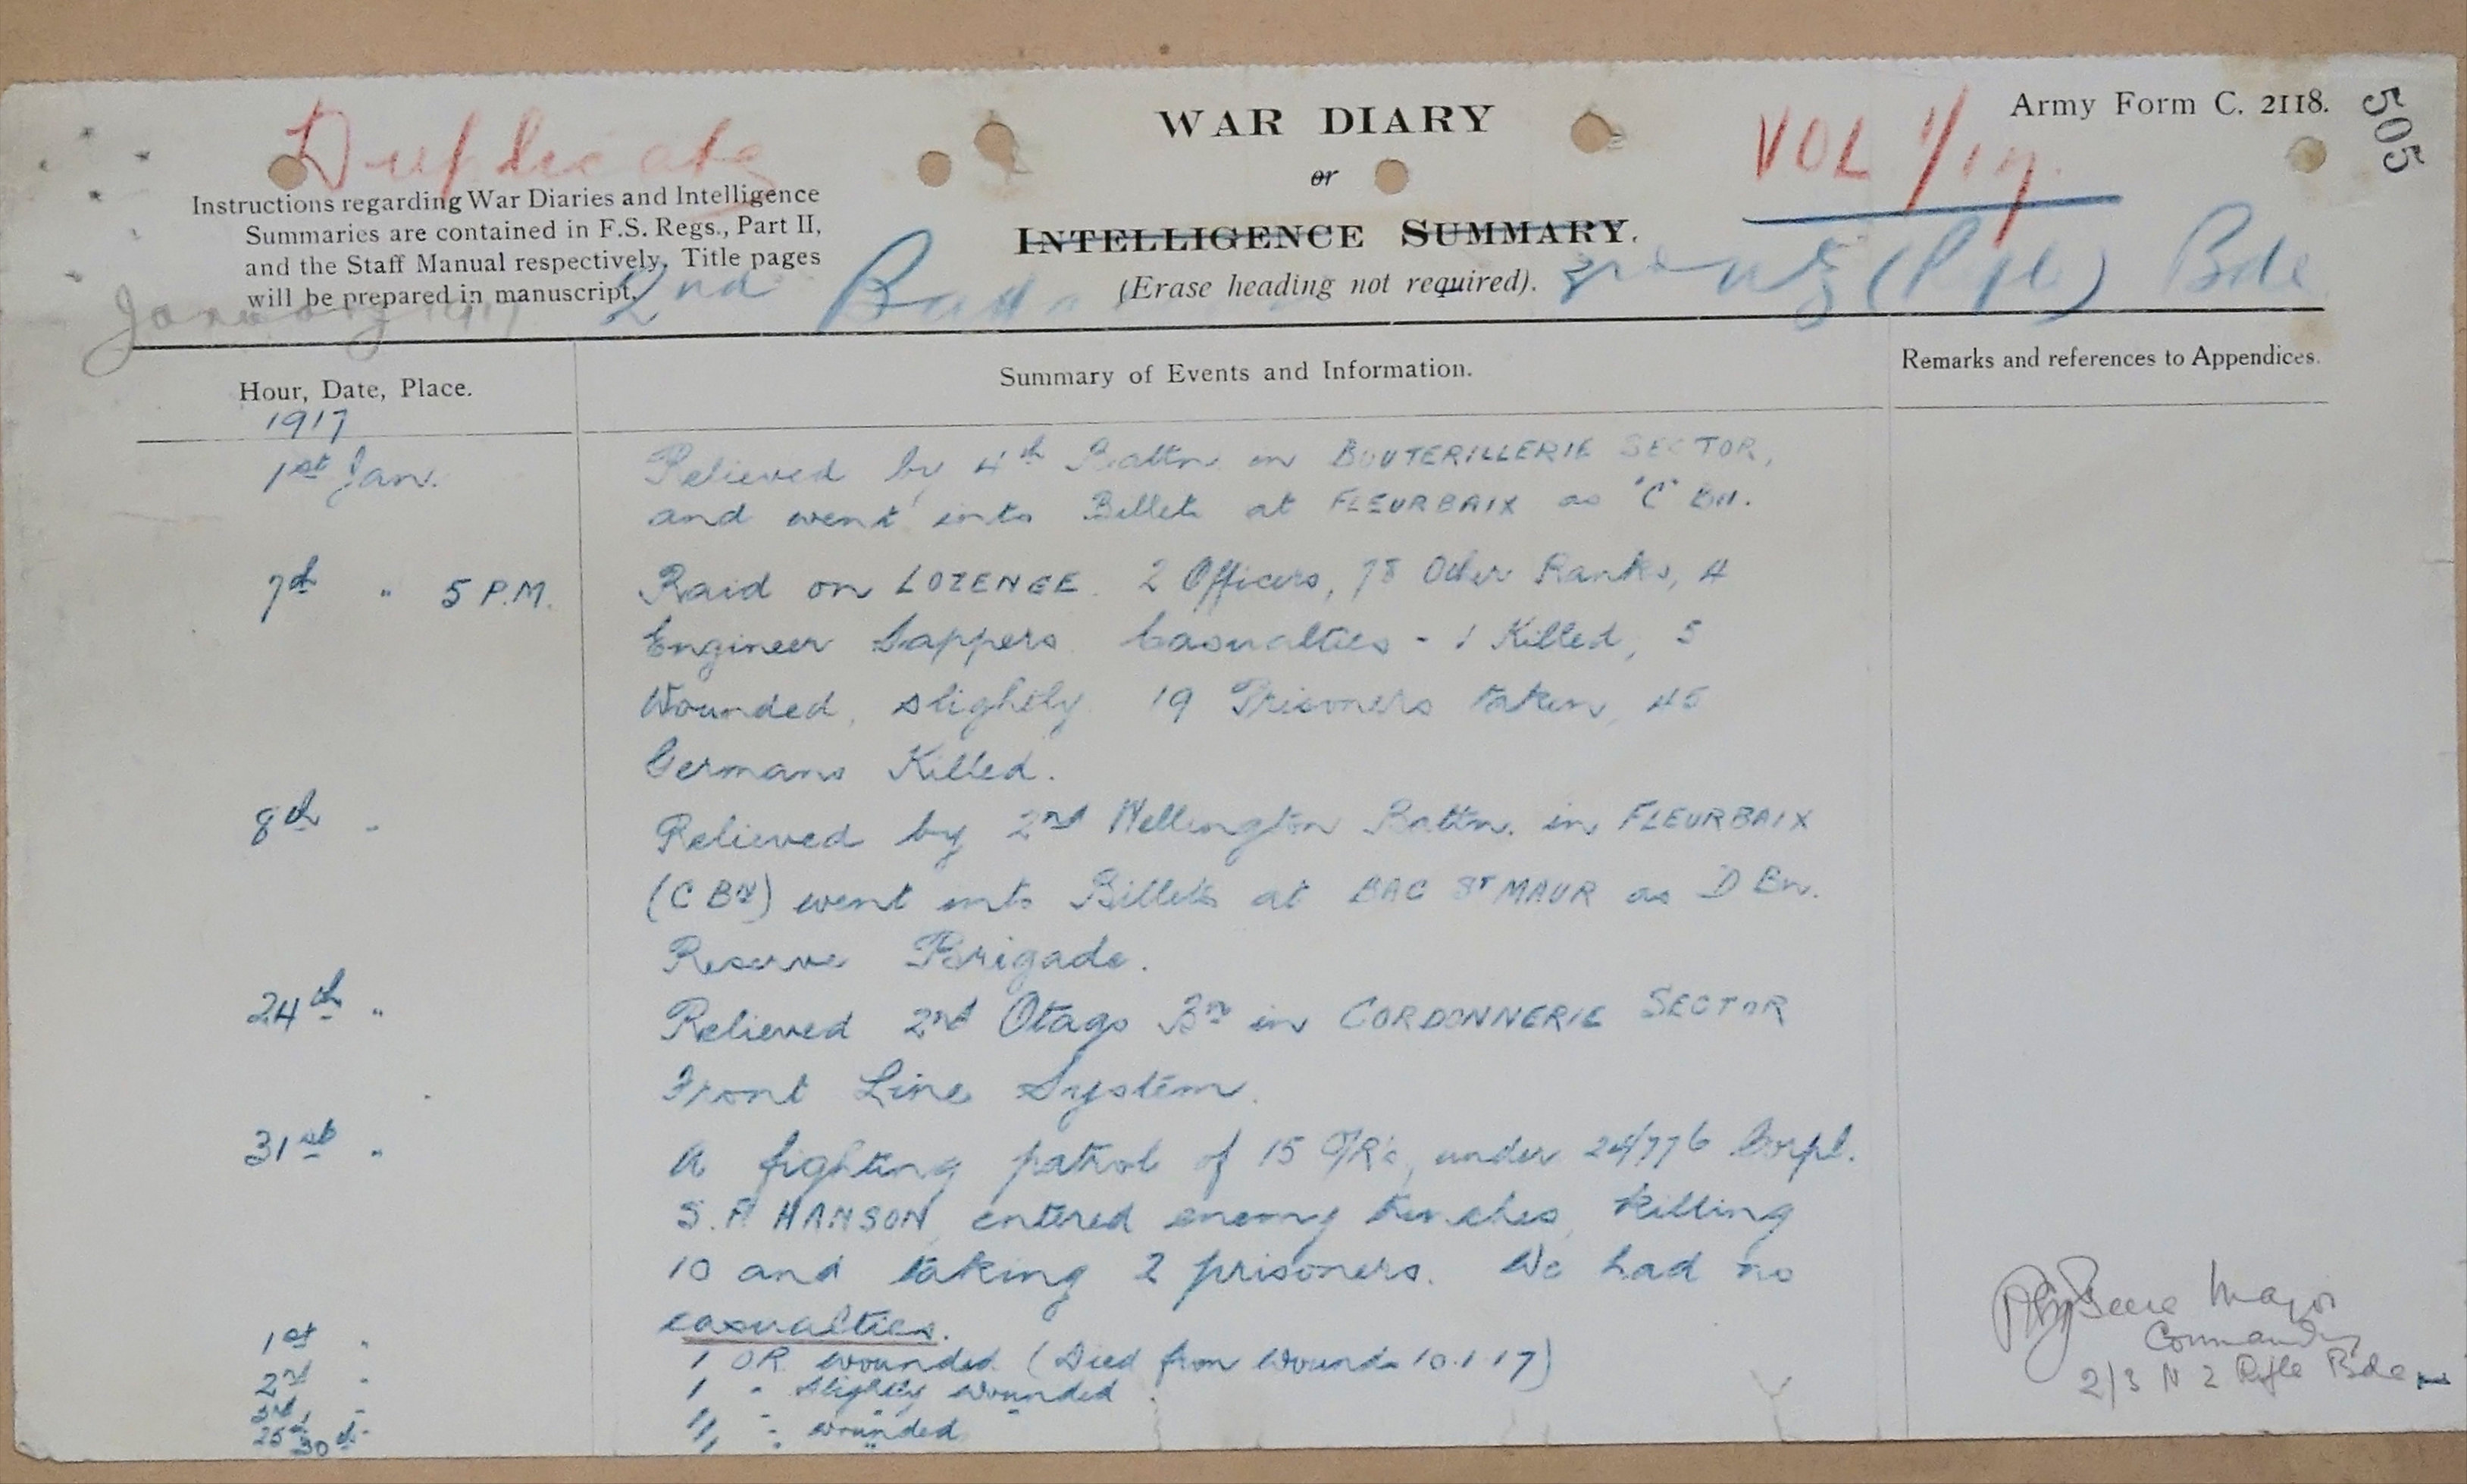 Duplicate
WAR DIARY
or
INTELLIGENCE SUMMARY.
(Erase heading not required).
VOL 1/17.
Army Form C. 2118.
505
Instructions regarding War Diaries and Intelligence
Summaries are contained in F.S. Regs., Part II,
and the Staff Manual respectively. Title pages
will be prepared in manuscript.
January 1917
2nd (Rfle) Bde
Hour, Date, Place.
Summary of Events and Information.
Remarks and references to Appendices.
1917
1st Jan. Relieved by 4th Battn. in BOUTERILLERIE SECTOR,
and went into Billets at FLEURBAIX as 'C' Bn.
7th " 5 P.M. Raid on LOZENGE. 2 Officers, 78 Other Ranks, 4
Engineer Sappers. Casualties - 1 Killed, 5
Wounded, slightly. 19 Prisoners taken, 45
Germans Killed.
8th " Relieved by 2nd Wellington Battn. in FLEURBAIX
(C Bn) went into Billets at BAC ST MAUR as D Bn.
Reserve Brigade.
24th " Relieved 2nd Otago Bn in CORDONNERIE SECTOR
Front Line System.
31st " A fighting patrol of 15 O/R's, under 24/776 Corpl.
S. A HANSON, entered enemy trenches, killing
10 and taking 2 prisoners. We had no
casualties.
1st " 1 OR wounded (Died from Wounds 10.1.17)
2nd " 1 " slightly wounded
3rd, "
25th 30th " " wounded
Major
Commanding
2/3 N Z Rifle Bde